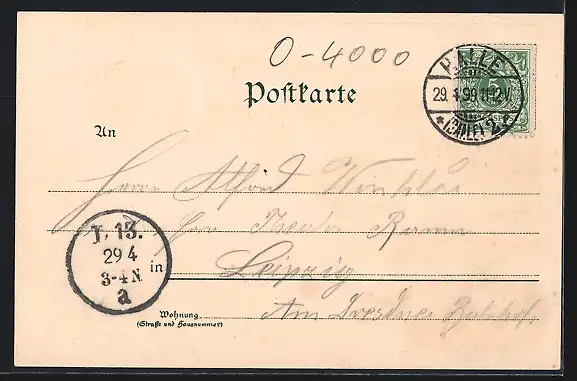 O-4000
HALLE
29.4.99.11-12V.
*(SAALE) 2.c
5
Postkarte
An
Herrn Alfred Winkler
Theater
L. 13.
29 4
3-4 N
a
in
Leipzig
Wohnung
(Straße und Hausnummer)
Am Dresdner Bahnhof.